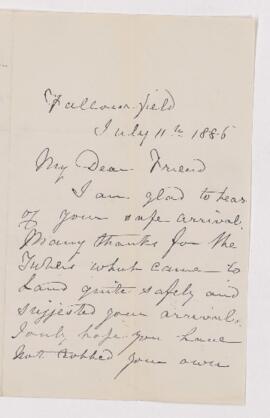 Fallowfield
July 11th 1886
My Dear Friend
I am glad to hear
of your safe arrival.
Many thanks for the
which came to
hand quite safely and
suggested your arrival.
I only hope you have
not robbed your own